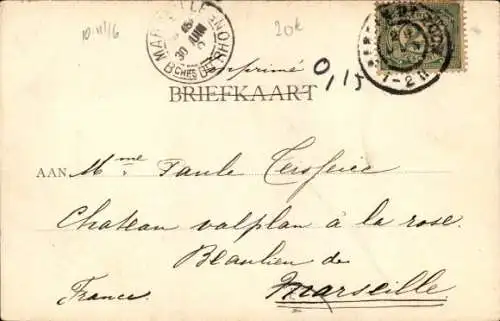 10-11/6
20k
MARSEILLE
30 JUIN
BCHES DU RHONE
Imprimé
0,15
BRIEFKAART
AAN Mme Paule Teisseire
Chateau valplan à la rose
Beaulieu de
Marseille
France.